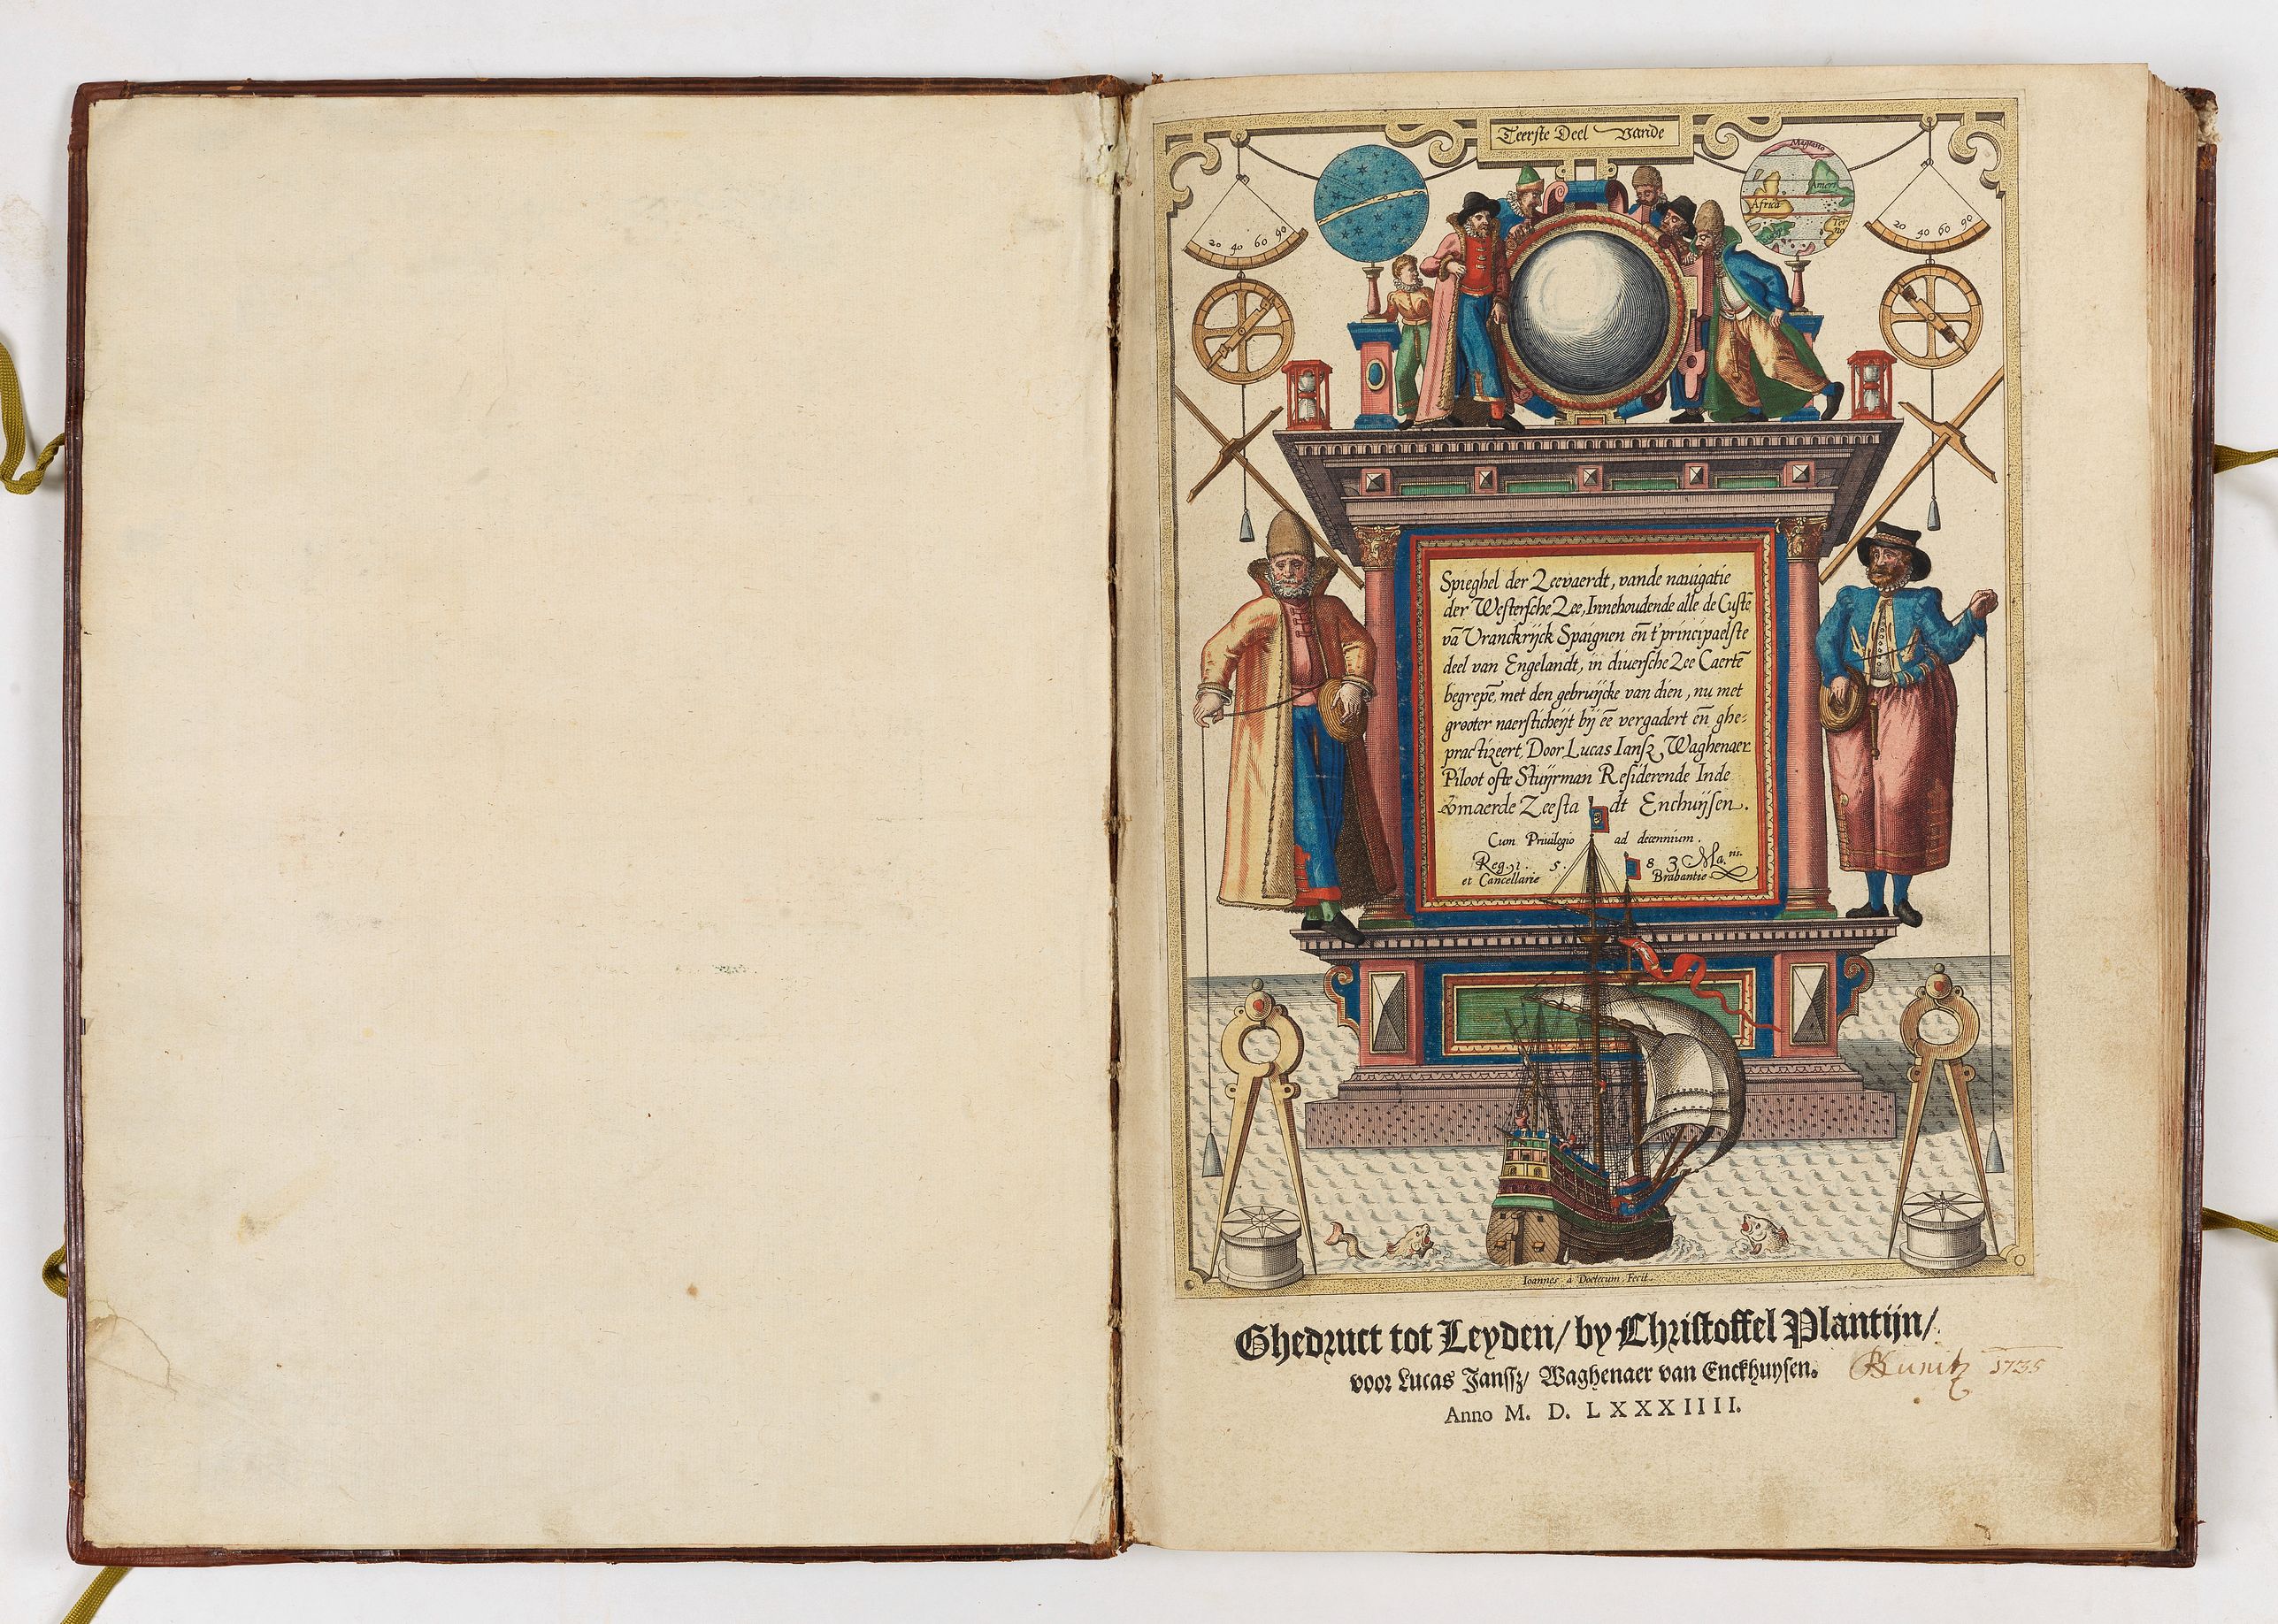 Teerste Deel Vande
Magallano
Ameri
Africa
20 40 60 90
20 40 60 90
Spieghel der Zeevaerdt, vande nauigatie
der Westersche Zee, Innehoudende alle de Custē
vā Vranckrijck Spaignen eñ t'principaelste
deel van Engelandt, in diuersche Zee Caertē
begrepē, met den gebruijcke van dien, nu met
grooter naersticheijt bij eē vergadert eñ ghe-
practizeert, Door Lucas Iansz Waghenaer
Piloot ofte Stuijrman Residerende Inde
vmaerde Zeestadt Enchuijsen.
Cum Priuilegio ad decennium.
Reg. 1. 5. 8 3 Ma.tis.
et Cancellarie Brabantie
Ioannes à Doetecum. Fecit.
Ghedruct tot Leyden/ by Christoffel Plantijn/
voor Lucas Janssz/ Waghenaer van Enckhuysen.
1735
Anno M. D. LXXXIIII.